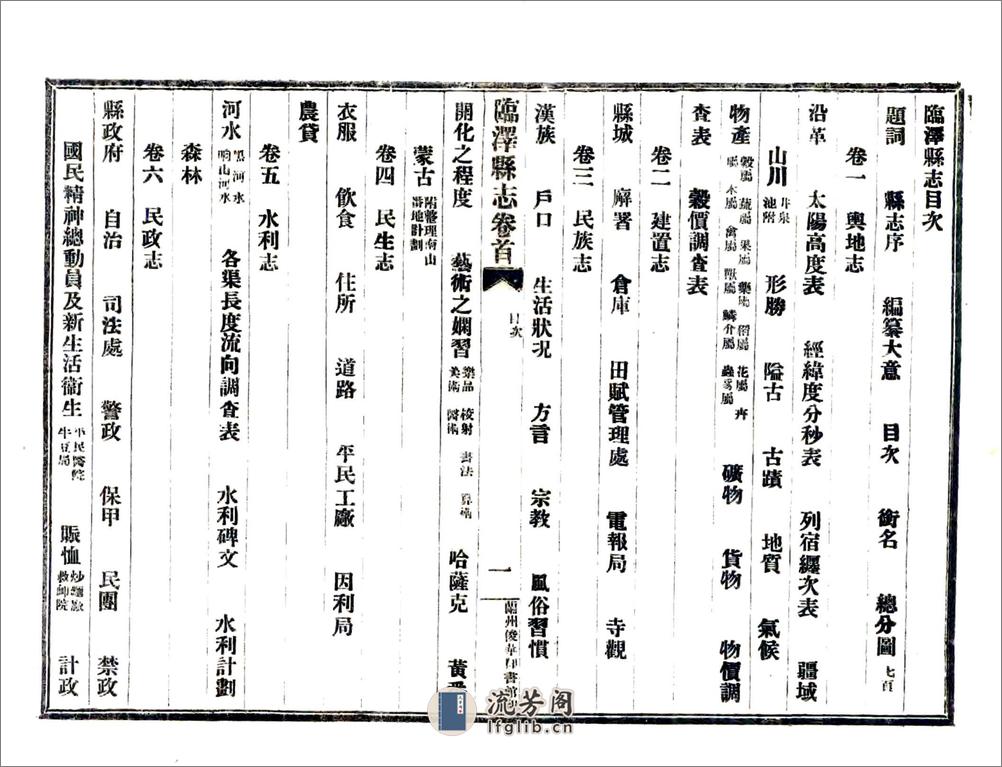 臨澤縣志目次
題詞 縣志序 編纂大意 目次 銜名 總分圖 七頁
卷一 輿地志
沿革 太陽高度表 經緯度分秒表 列宿纏次表 疆域
山川 井泉池附 形勝 隘古 古蹟 地質 氣候
物產 穀屬 蔬屬 果屬 藥屬 花屬 卉屬 木屬 禽屬 獸屬 鱗介屬 礦物 貨物 物價調
查表 糓價調查表
卷二 建置志
縣城 廨署 倉庫 田賦管理處 電報局 寺觀
卷三 民族志
漢族 戶口 生活狀況 方言 宗教 風俗習慣
臨澤縣志卷首 目次 一 蘭州俊華印書館
開化之程度 藝術之嫻習 樂品 美術 校射 醫術 書法 算術 哈薩克 黃番
蒙古 附整理南山番地計劃
卷四 民生志
衣服 飲食 住所 道路 平民工廠 因利局
農貸
卷五 水利志
河水 黑河水 响山河水 各渠長度流向調查表 水利碑文 水利計劃
森林
卷六 民政志
縣政府 自治 司法處 警政 保甲 民團 禁政
國民精神總動員及新生活衞生 平民醫院 牛豆局 賑恤 救師院 計政
流芳阁
lfglib.cn